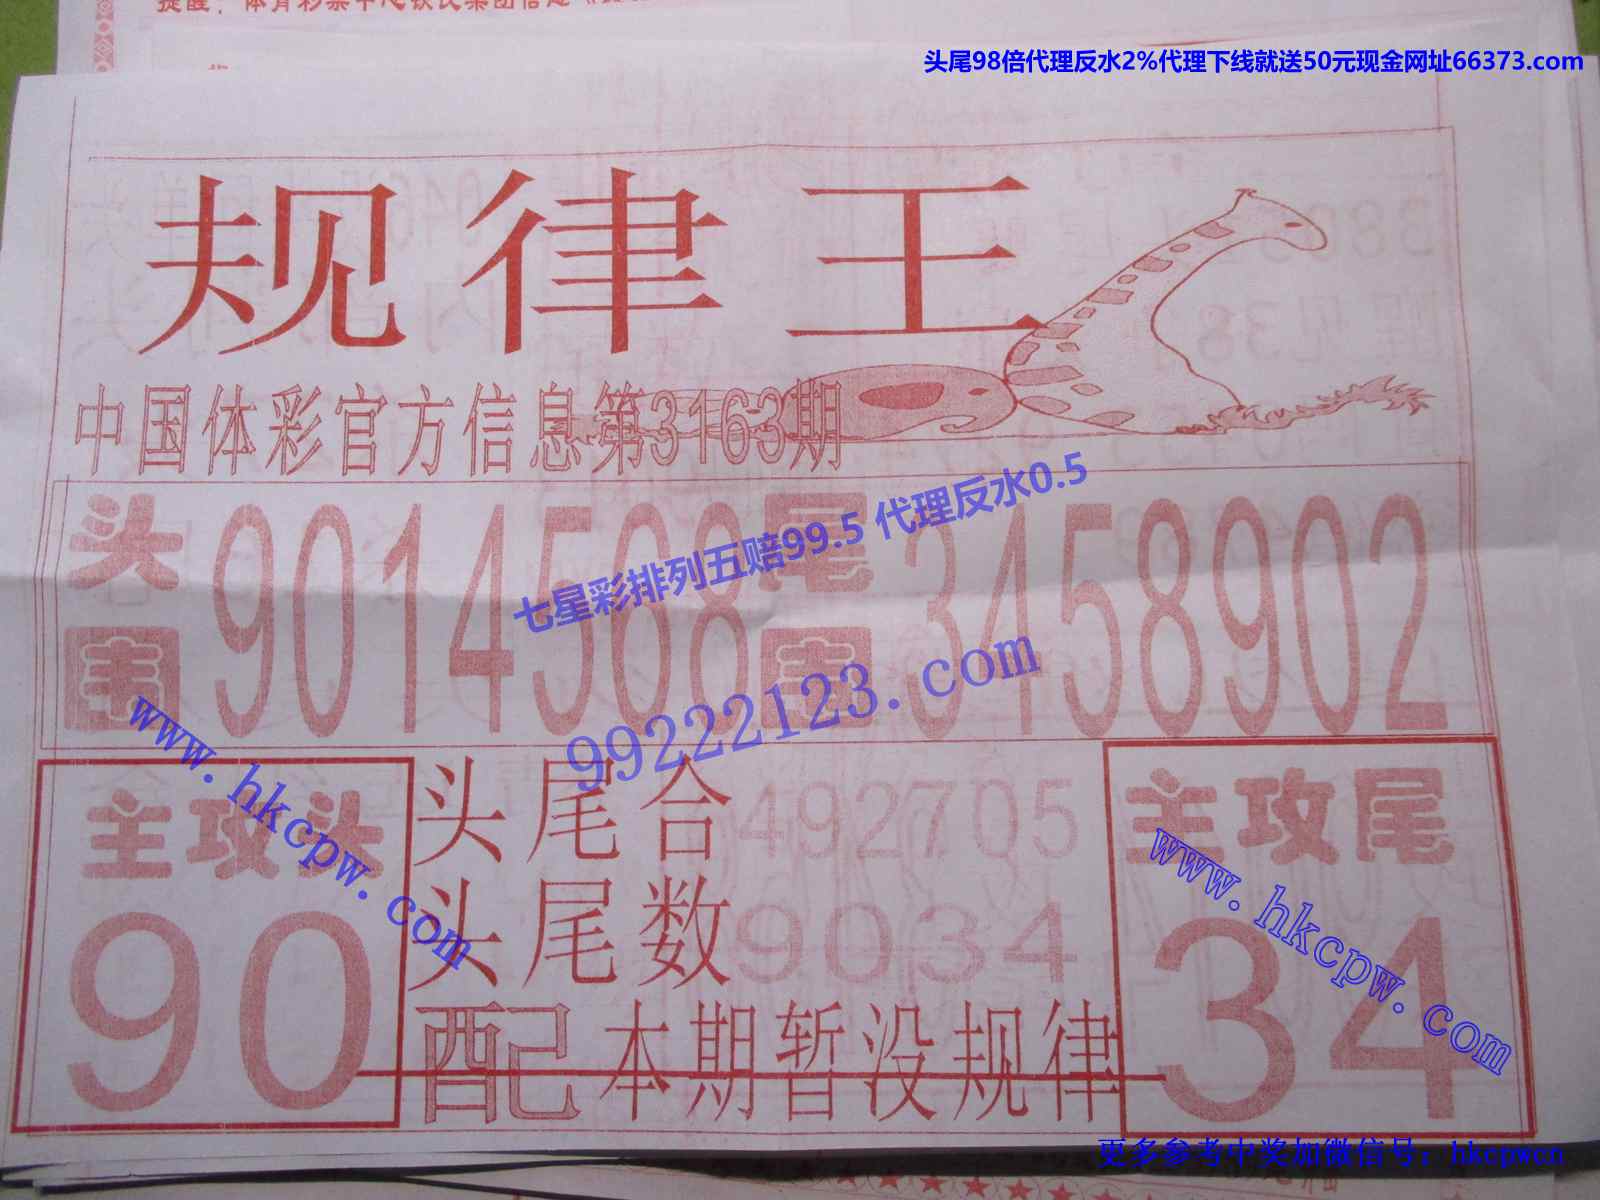 提醒：体育彩票中心彩民集团信息
头尾98倍代理反水2%代理下线就送50元现金网址66373.com
规律王
中国体彩官方信息第3163期
头围 9014568 尾围 3458902
七星彩排列五赔99.5 代理反水0.5
99222123.com
www.hkcpw.com
主攻头
90
头尾合 492705
头尾数 9034
配己 本期暂没规律
主攻尾
34
www.hkcpw.com
更多参考中奖加微信号：hkcpwcn